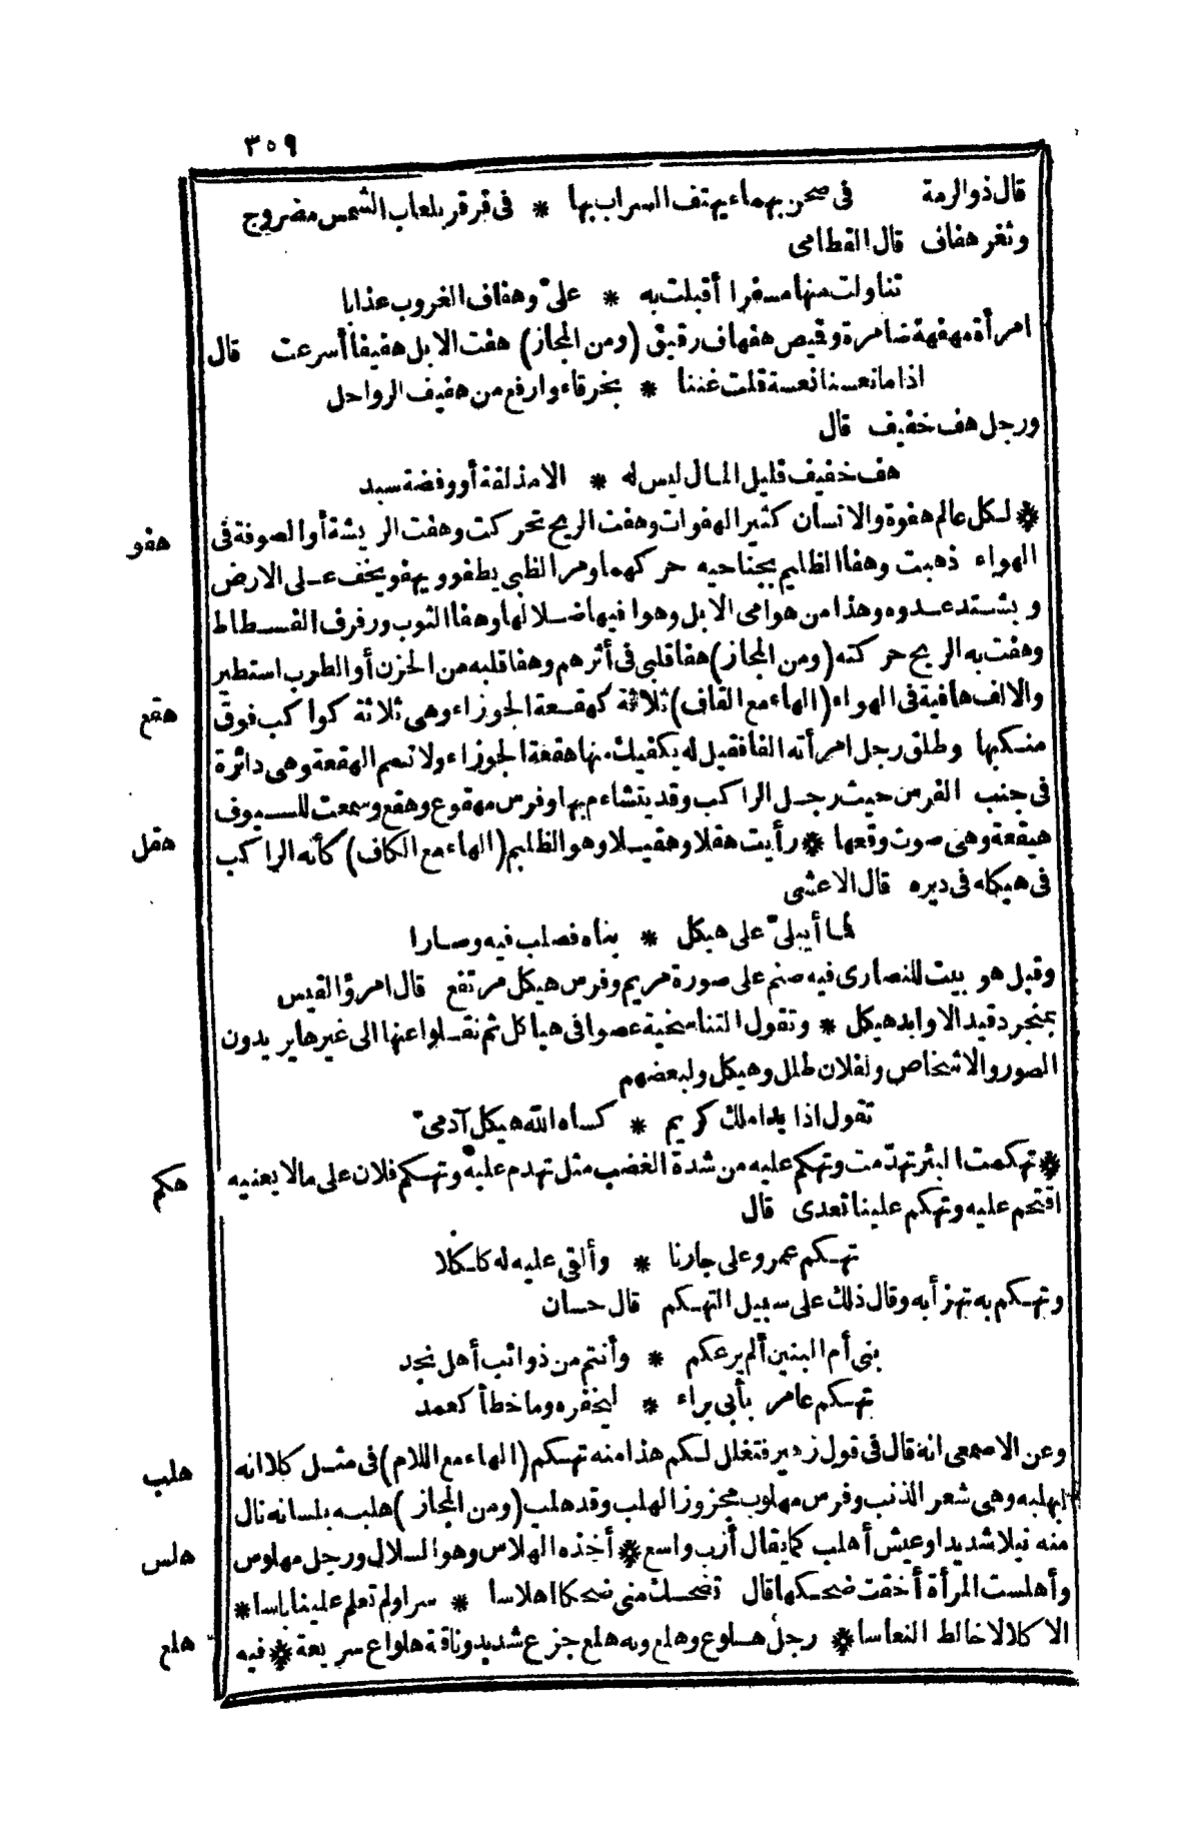 ٣٥٩
قال ذو الرمة في صحن يهماء يهتف السراب بها * في قرقر بلعاب الشمس مضروج
وثغر هفاف قال القطامى
تناولت منها مسفرا أقبلت به * علىّ وهفاف الغروب عذابا
امرأة مهفهفة ضامرة وقيص هفهاف رقيق (ومن المجاز) هفت الابل هفيفا أسرعت قال
اذا ما نعسنا نعسة قلت غننا * بخرقاء وارفع من هفيف الرواحل
ورجل هف خفيف قال
هف خفيف قليل المال ليس له * الا مذلقة أو وفضة سبد
هفو
* لكل عالم هفوة والانسان كثير الهفوات وهفت الريح تحركت وهفت الريشة أو الصوفة فى
الهواء ذهبت وهفا الظليم بجناحيه حركهما ومر الظبي يطفو ويهفو يخف على الارض
ويشتد عدوه وهذا من هوامى الابل وهوافيها ضلالها وهفا الثوب ورفرف الفسطاط
وهفت به الريح حركته (ومن المجاز) هفا قلبى فى أثرهم وهفا قلبه من الحزن أو الطرب استطير
والالف هافية فى الهواء (الهاء مع القاف) ثلاثة كهقعة الجوزاء وهى ثلاثة كواكب فوق
هقع
منكبها وطلق رجل امرأته الفا فقيل له يكفيك منها هقعة الجوزاء ولا تسم الهقعة وهى دائرة
فى جنب الفرس حيث رجل الراكب وقد يتشاءم بها وفرس مهقوع وهقع وسمعت للسيوف
هيقعة وهى صوت وقعها * رأيت هقلا وهقيلا وهو الظليم (الهاء مع الكاف) كأنه الراكب
هقل
فى هيكله فى ديره قال الاعشى
لما أيبلىّ على هيكل * بناه فصلب فيه وصارا
وقيل هو بيت للنصارى فيه صنم على صورة مريم وفرس هيكل مرتفع قال امرؤ القيس
بمنجرد قيد الاوابد هيكل * وتقول التناسخية عصوا فى هياكل ثم نقلوا عنها الى غيرها يريدون
الصور والاشخاص ولفلان طلل وهيكل ولبعضهم
تقول اذا بدا ملك كريم * كساه الله هيكل آدمىّ
* تهكمت البئر تهدّمت وتهكم عليه من شدة الغضب مثل تهدم عليه وتهكم فلان على ما لا يعنيه
هكم
اقتحم عليه وتهكم علينا تعدى قال
تهكم عمرو على جارنا * وألقى عليه له كلكلا
وتهكم به تهزأ به وقال ذلك على سبيل التهكم قال حسان
بنى أم البنين ألم يرعكم * وأنتم من ذوائب أهل نجد
تهكم عامر بأبى براء * ليخفره وما خطأ كعمد
وعن الاصمعى انه قال فى قول زهير فتغلل لكم هذا منه تهكم (الهاء مع اللام) فى مثل كلا انه
هلب
لبهلبه وهى شعر الذنب وفرس مهلوب مجزوز الهلب وقد هلب (ومن المجاز) هلبه بلسانه نال
منه نيلا شديدا وعيش أهلب كما يقال أزب واسع * أخذه الهلاس وهو السلال ورجل مهلوس
هلس
وأهلست المرأة أخفت ضحكها قال تضحك منى ضحكا اهلاسا * سرا ولم تعلم علينا باسا *
الا كلالا خالط النعاسا * رجل هلوع وهلع وبه هلع جزع شديد وناقة هلواع سريعة * فيه
هلع